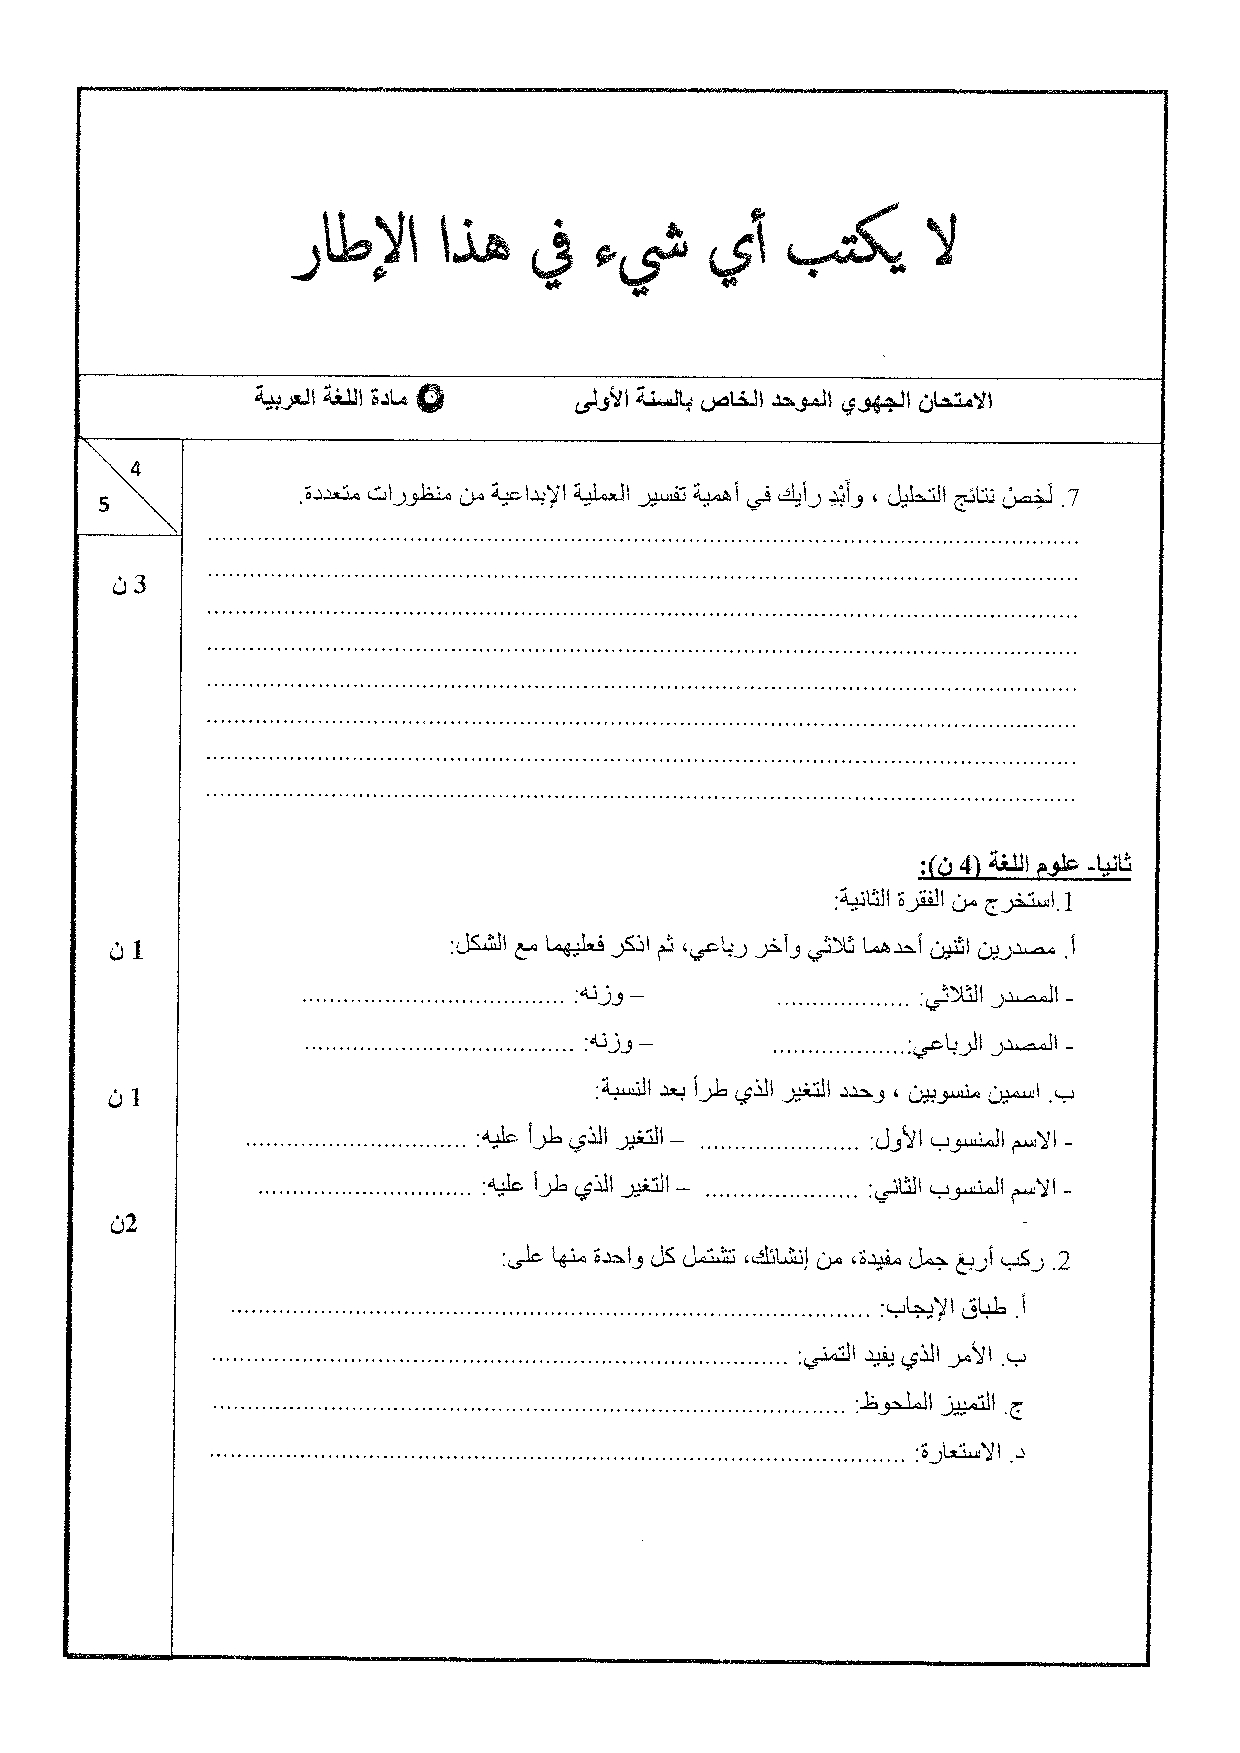 لا يكتب أي شيء في هذا الإطار
الامتحان الجهوي الموحد الخاص بالسنة الأولى مادة اللغة العربية
4
5
7. لَخِصْ نتائج التحليل ، وأَبْدِ رأيك في أهمية تفسير العملية الإبداعية من منظورات متعددة.
3 ن
ثانيا- علوم اللغة (4 ن):
1.استخرج من الفقرة الثانية:
أ. مصدرين اثنين أحدهما ثلاثي وآخر رباعي، ثم اذكر فعليهما مع الشكل:
1 ن
- المصدر الثلاثي: .................. – وزنه: ....................................
- المصدر الرباعي:.................. – وزنه: ....................................
ب. اسمين منسوبين ، وحدد التغير الذي طرأ بعد النسبة:
1 ن
- الاسم المنسوب الأول: ...................... – التغير الذي طرأ عليه: ..............................
- الاسم المنسوب الثاني: ..................... – التغير الذي طرأ عليه: .............................
2ن
2. ركب أربع جمل مفيدة، من إنشائك، تشتمل كل واحدة منها على:
أ. طباق الإيجاب: ..........................................................................
ب. الأمر الذي يفيد التمني: ..........................................................................
ج. التمييز الملحوظ: ..........................................................................
د. الاستعارة: ..........................................................................